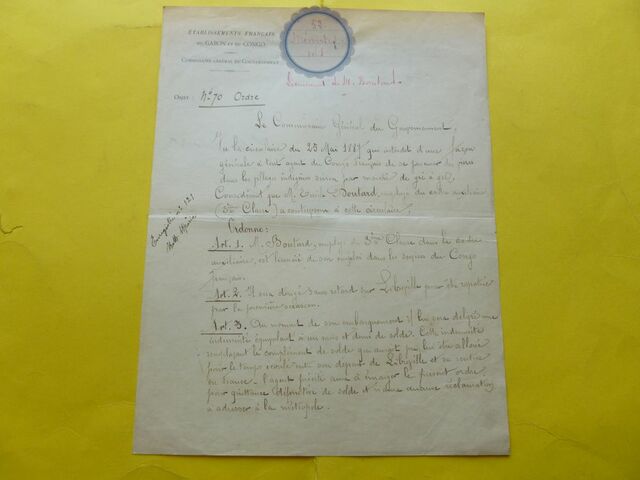 ÉTABLISSEMENTS FRANÇAIS
DU GABON ET DU CONGO
COMMISSAIRE GÉNÉRAL DU GOUVERNEMENT
52
Licenciement de M. Boutard
OBJET : No 70 Ordre
Le Commissaire Général du Gouvernement
Vu la circulaire du 25 Mai 1887 qui interdit d'une façon
générale à tout agent du Congo français de se procurer des
dans les villages indigènes sinon par marché de gré à gré,
Considérant que M. Emile Boutard, employé du cadre auxiliaire
(3me Classe) a contrevenu à cette circulaire,
Ordonne:
Enregistré no 121
Art. 1. M. Boutard, employé de 3me Classe dans le cadre
auxiliaire, est licencié de son emploi dans les services du Congo
français.
Art. 2. Il sera dirigé sans retard sur Libreville pour être rapatrié
par la première occasion.
Art. 3. Au moment de son embarquement il lui sera délégué une
indemnité équivalant à un mois et demi de solde. Cette indemnité
remplaçant le complément de solde qui aurait pu lui être allouée
pour le temps écoulé entre son départ de Libreville et sa rentrée
en France. L'agent précité aura à émarger le présent ordre,
pour quittance définitive de solde et n'aura aucune réclamation
à adresser à la métropole.